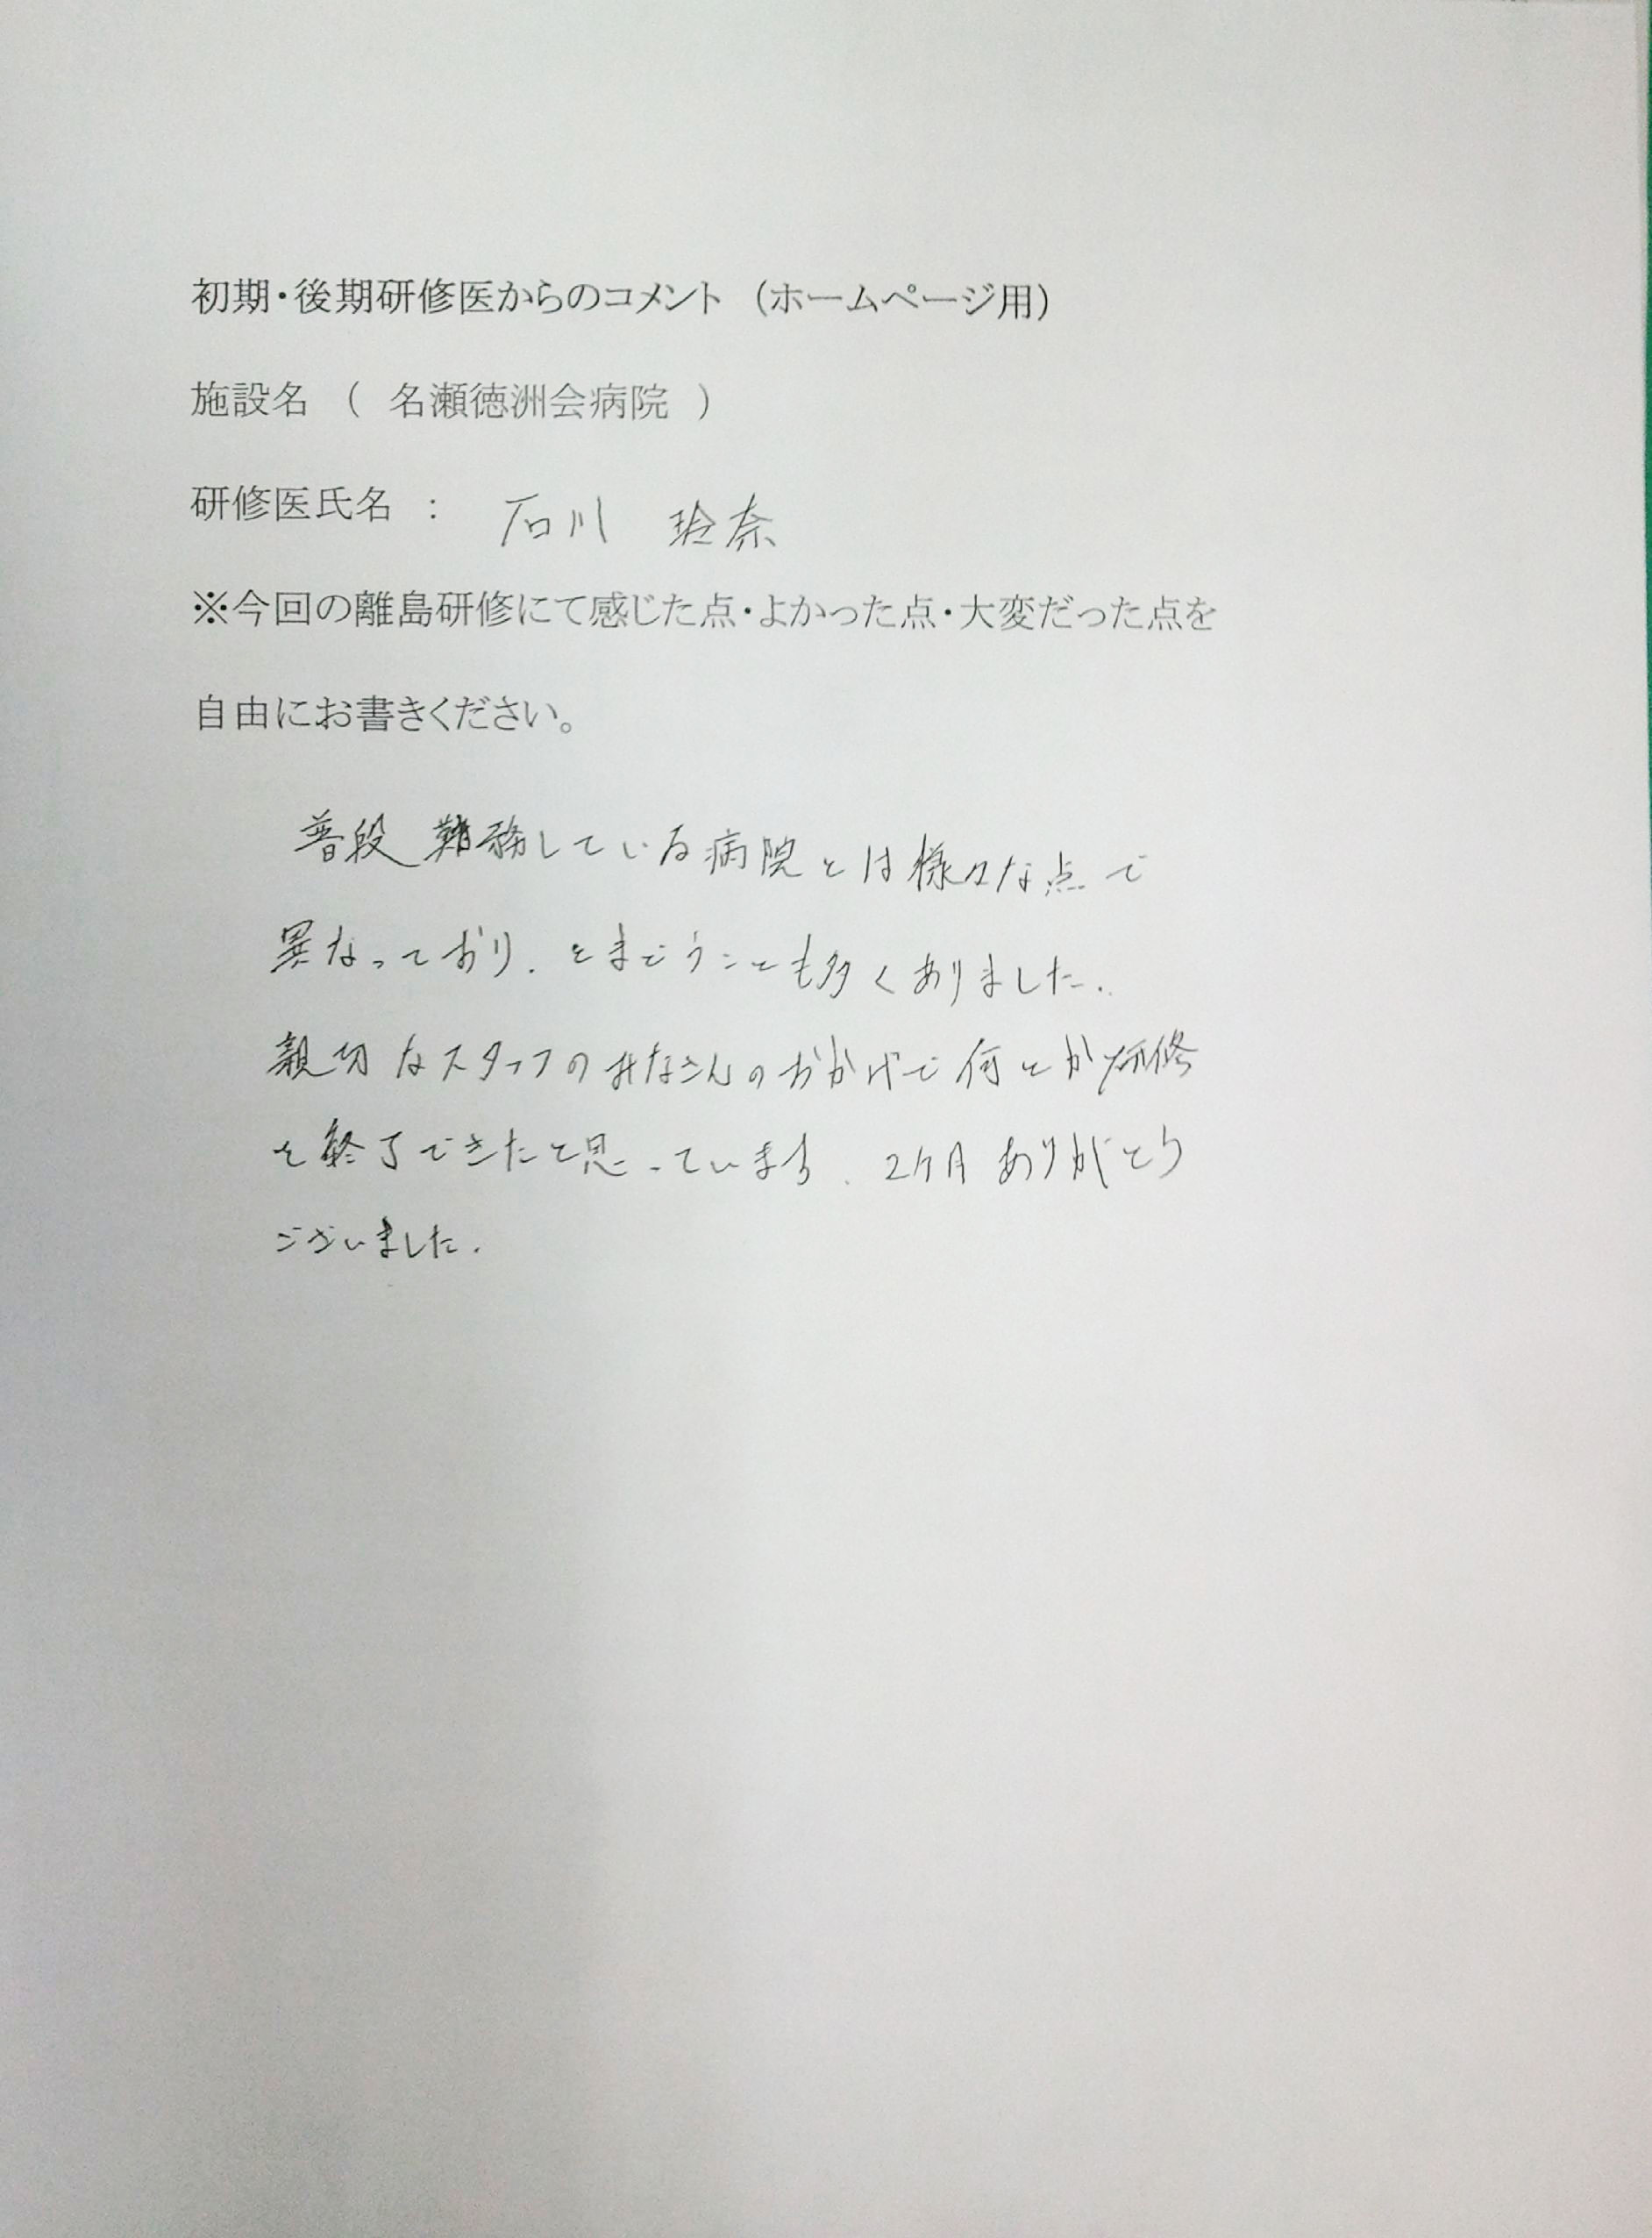 初期・後期研修医からのコメント (ホームページ用)
施設名 ( 名瀬徳洲会病院 )
研修医氏名 : 石川 玲奈
※今回の離島研修にて感じた点・よかった点・大変だった点を
自由にお書きください。
普段勤務している病院とは様々な点で
異なっており、とまどうことも多くありました.
親切なスタッフのみなさんのおかげで何とか研修
を終了できたと思っています. 2ケ月ありがとう
ございました.